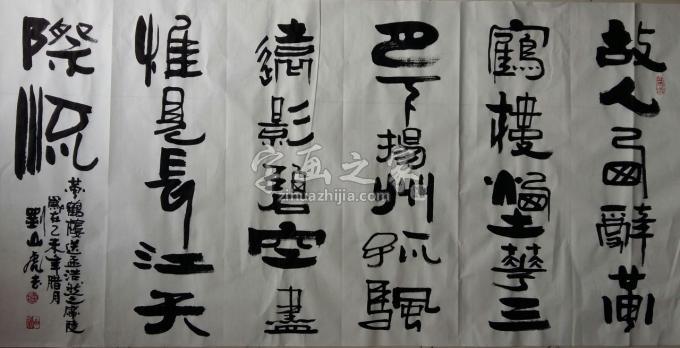 故人西辭黄
鶴樓煙華三
月下揚州孤颿
遠影碧空盡
惟見長江天
際流
黄鶴樓送孟浩然之廣陵
歲在乙未年腊月
劉山虎書
字画之家
zihuazhijia.com